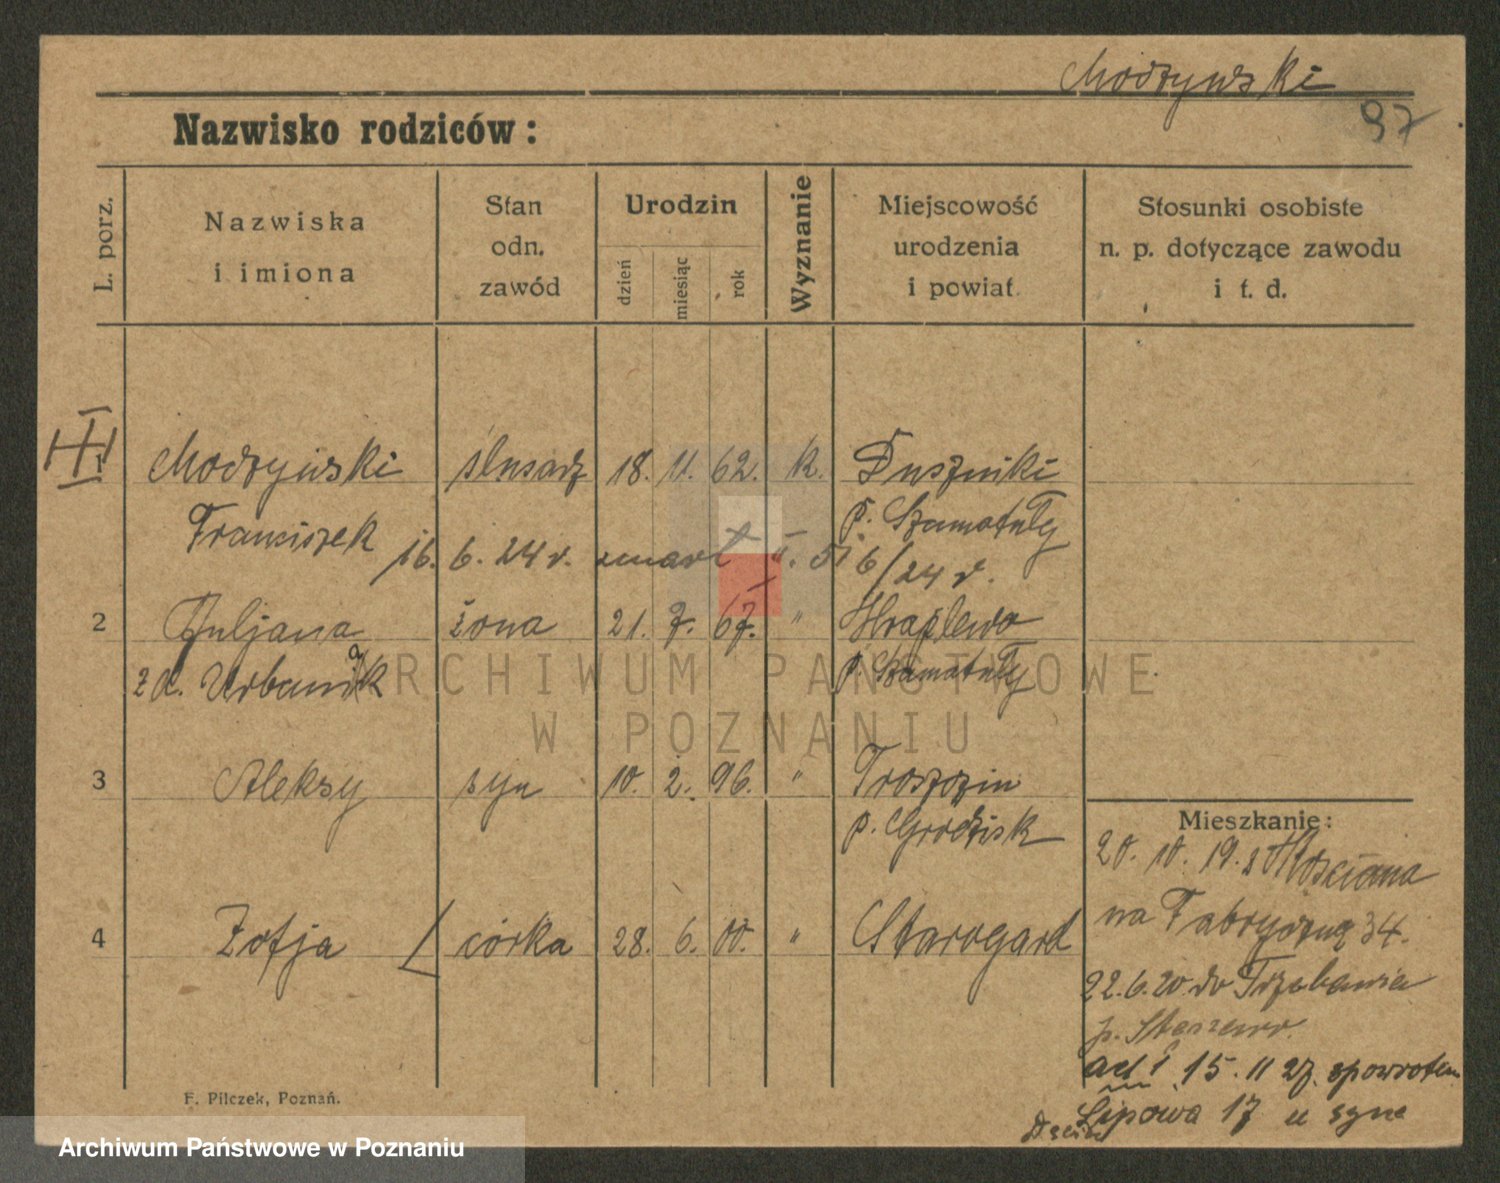 Modrzyński
97
Nazwisko rodziców:
L. porz.
Nazwiska
i imiona
Stan
odn.
zawód
Urodzin
dzień
miesiąc
rok
Wyznanie
Miejscowość
urodzenia
i powiat
Stosunki osobiste
n. p. dotyczące zawodu
i t. d.
III
1 ślusarz 18. 11. 62. k. Duszniki
Franciszek p. Szamotuły
16. 6. 24 r. zmarł 6/24 r.
2 Juljana żona 21. 7. 67. " Wraplewo
z d. Urbaniak p. Szamotuły
3 Aleksy syn 10. 2. 96. "
p. Grodzisk
4 Zofja córka 28. 6. 00. " Starogard
Mieszkanie:
20. 10. 19. z Kościana
na Fabryczną 34.
22.6.20 do Trzebania
p.
ad 1 15. 11 27. spowrotem
Lipowa 17 u syna
F. Pilczek, Poznań.
ARCHIWUM PAŃSTWOWE
W POZNANIU
Archiwum Państwowe w Poznaniu